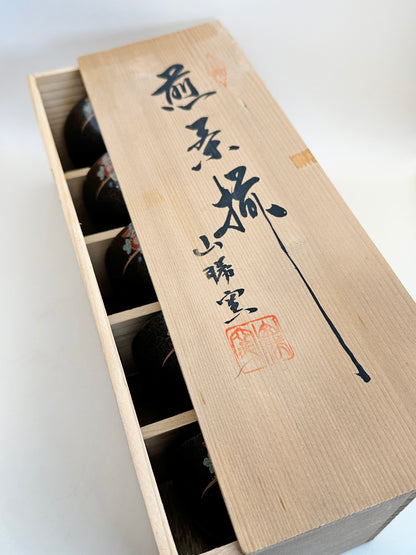 煎茶揃
山勝窯